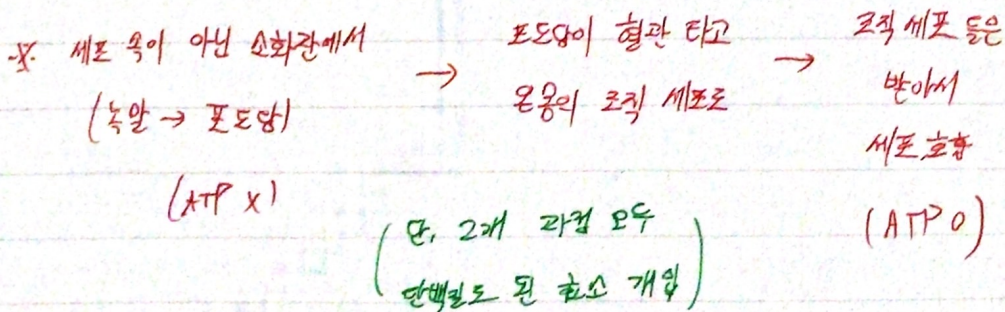 ※ 세포 속이 아닌 소화관에서
(녹말 → 포도당)
(ATP X)
→
포도당이 혈관 타고
온몸의 조직 세포로
→
조직 세포 들은
받아서
세포 호흡
(ATP O)
(단, 2개 과정 모두
단백질로 된 효소 개입)